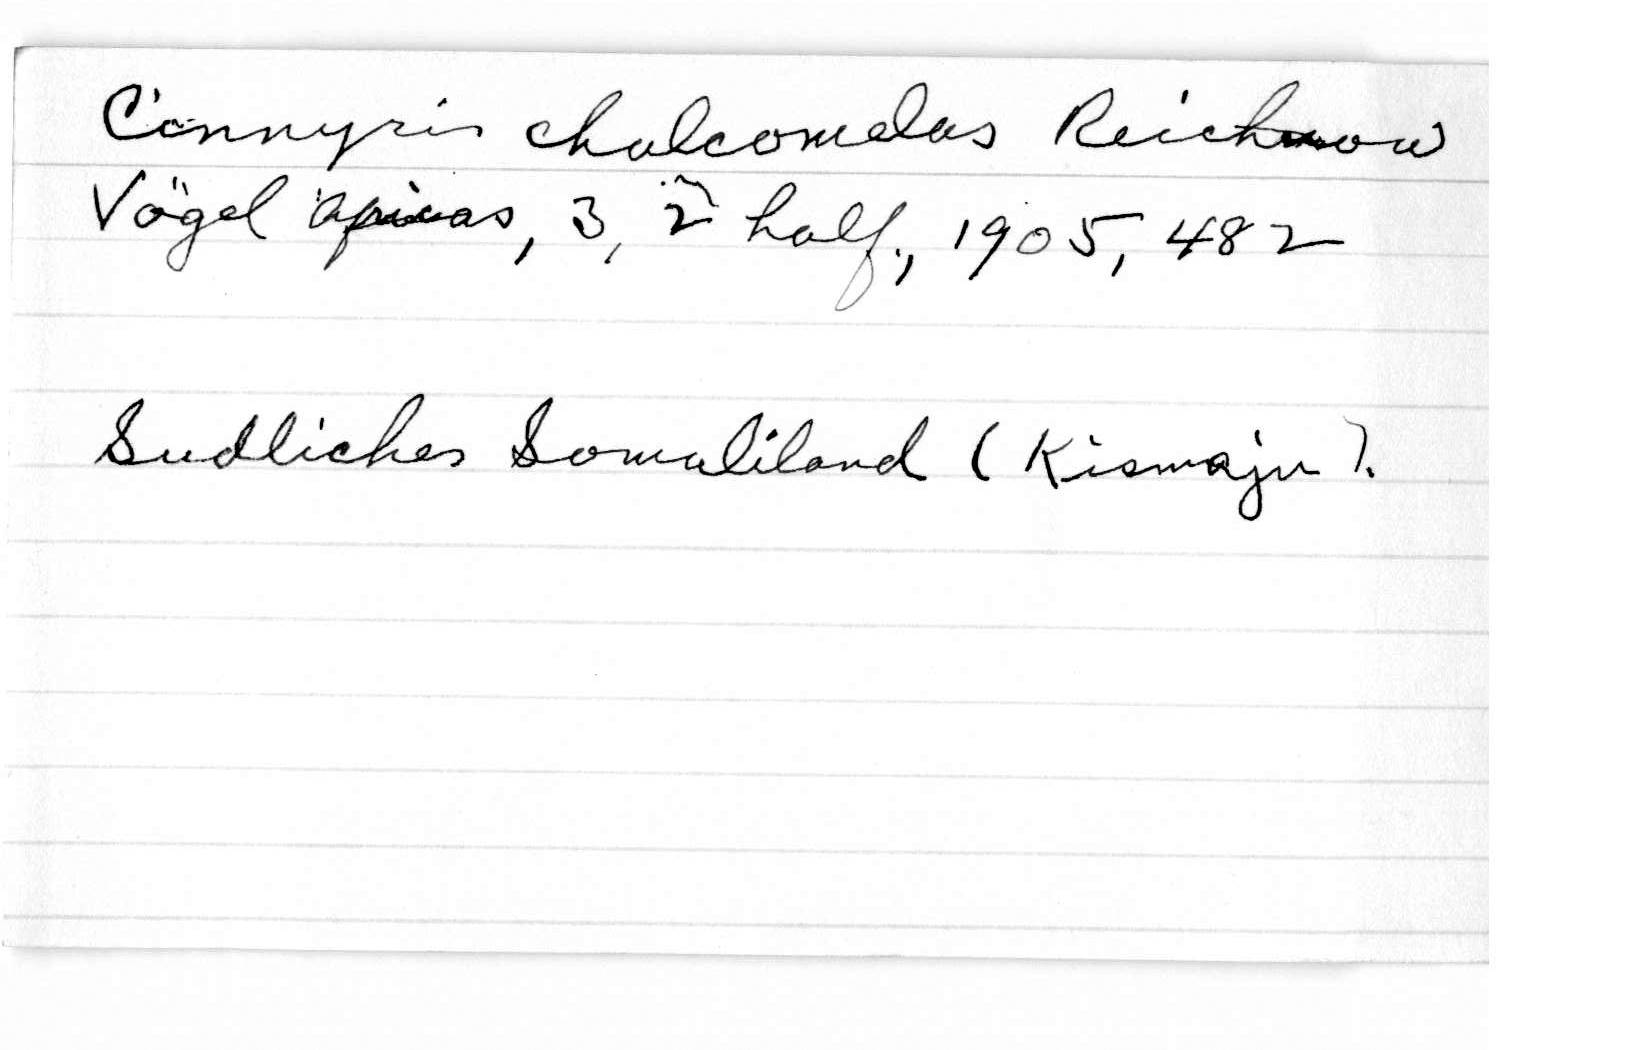 Cinnyris chalcomelas Reichenow
Vögel Africas, 3, 2 half., 1905, 482
Sudliches Somaliland (Kismaju).